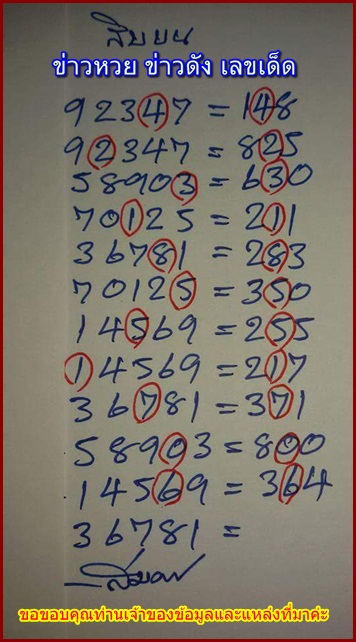 สิบบน
ข่าวหวย ข่าวดัง เลขเด็ด
92347 = 148
92347 = 825
58903 = 630
70125 = 211
36781 = 283
70125 = 350
14569 = 255
14569 = 217
36781 = 371
58903 = 800
14569 = 364
36781 =
สิบบน
ขอขอบคุณท่านเจ้าของข้อมูลและแหล่งที่มาค่ะ